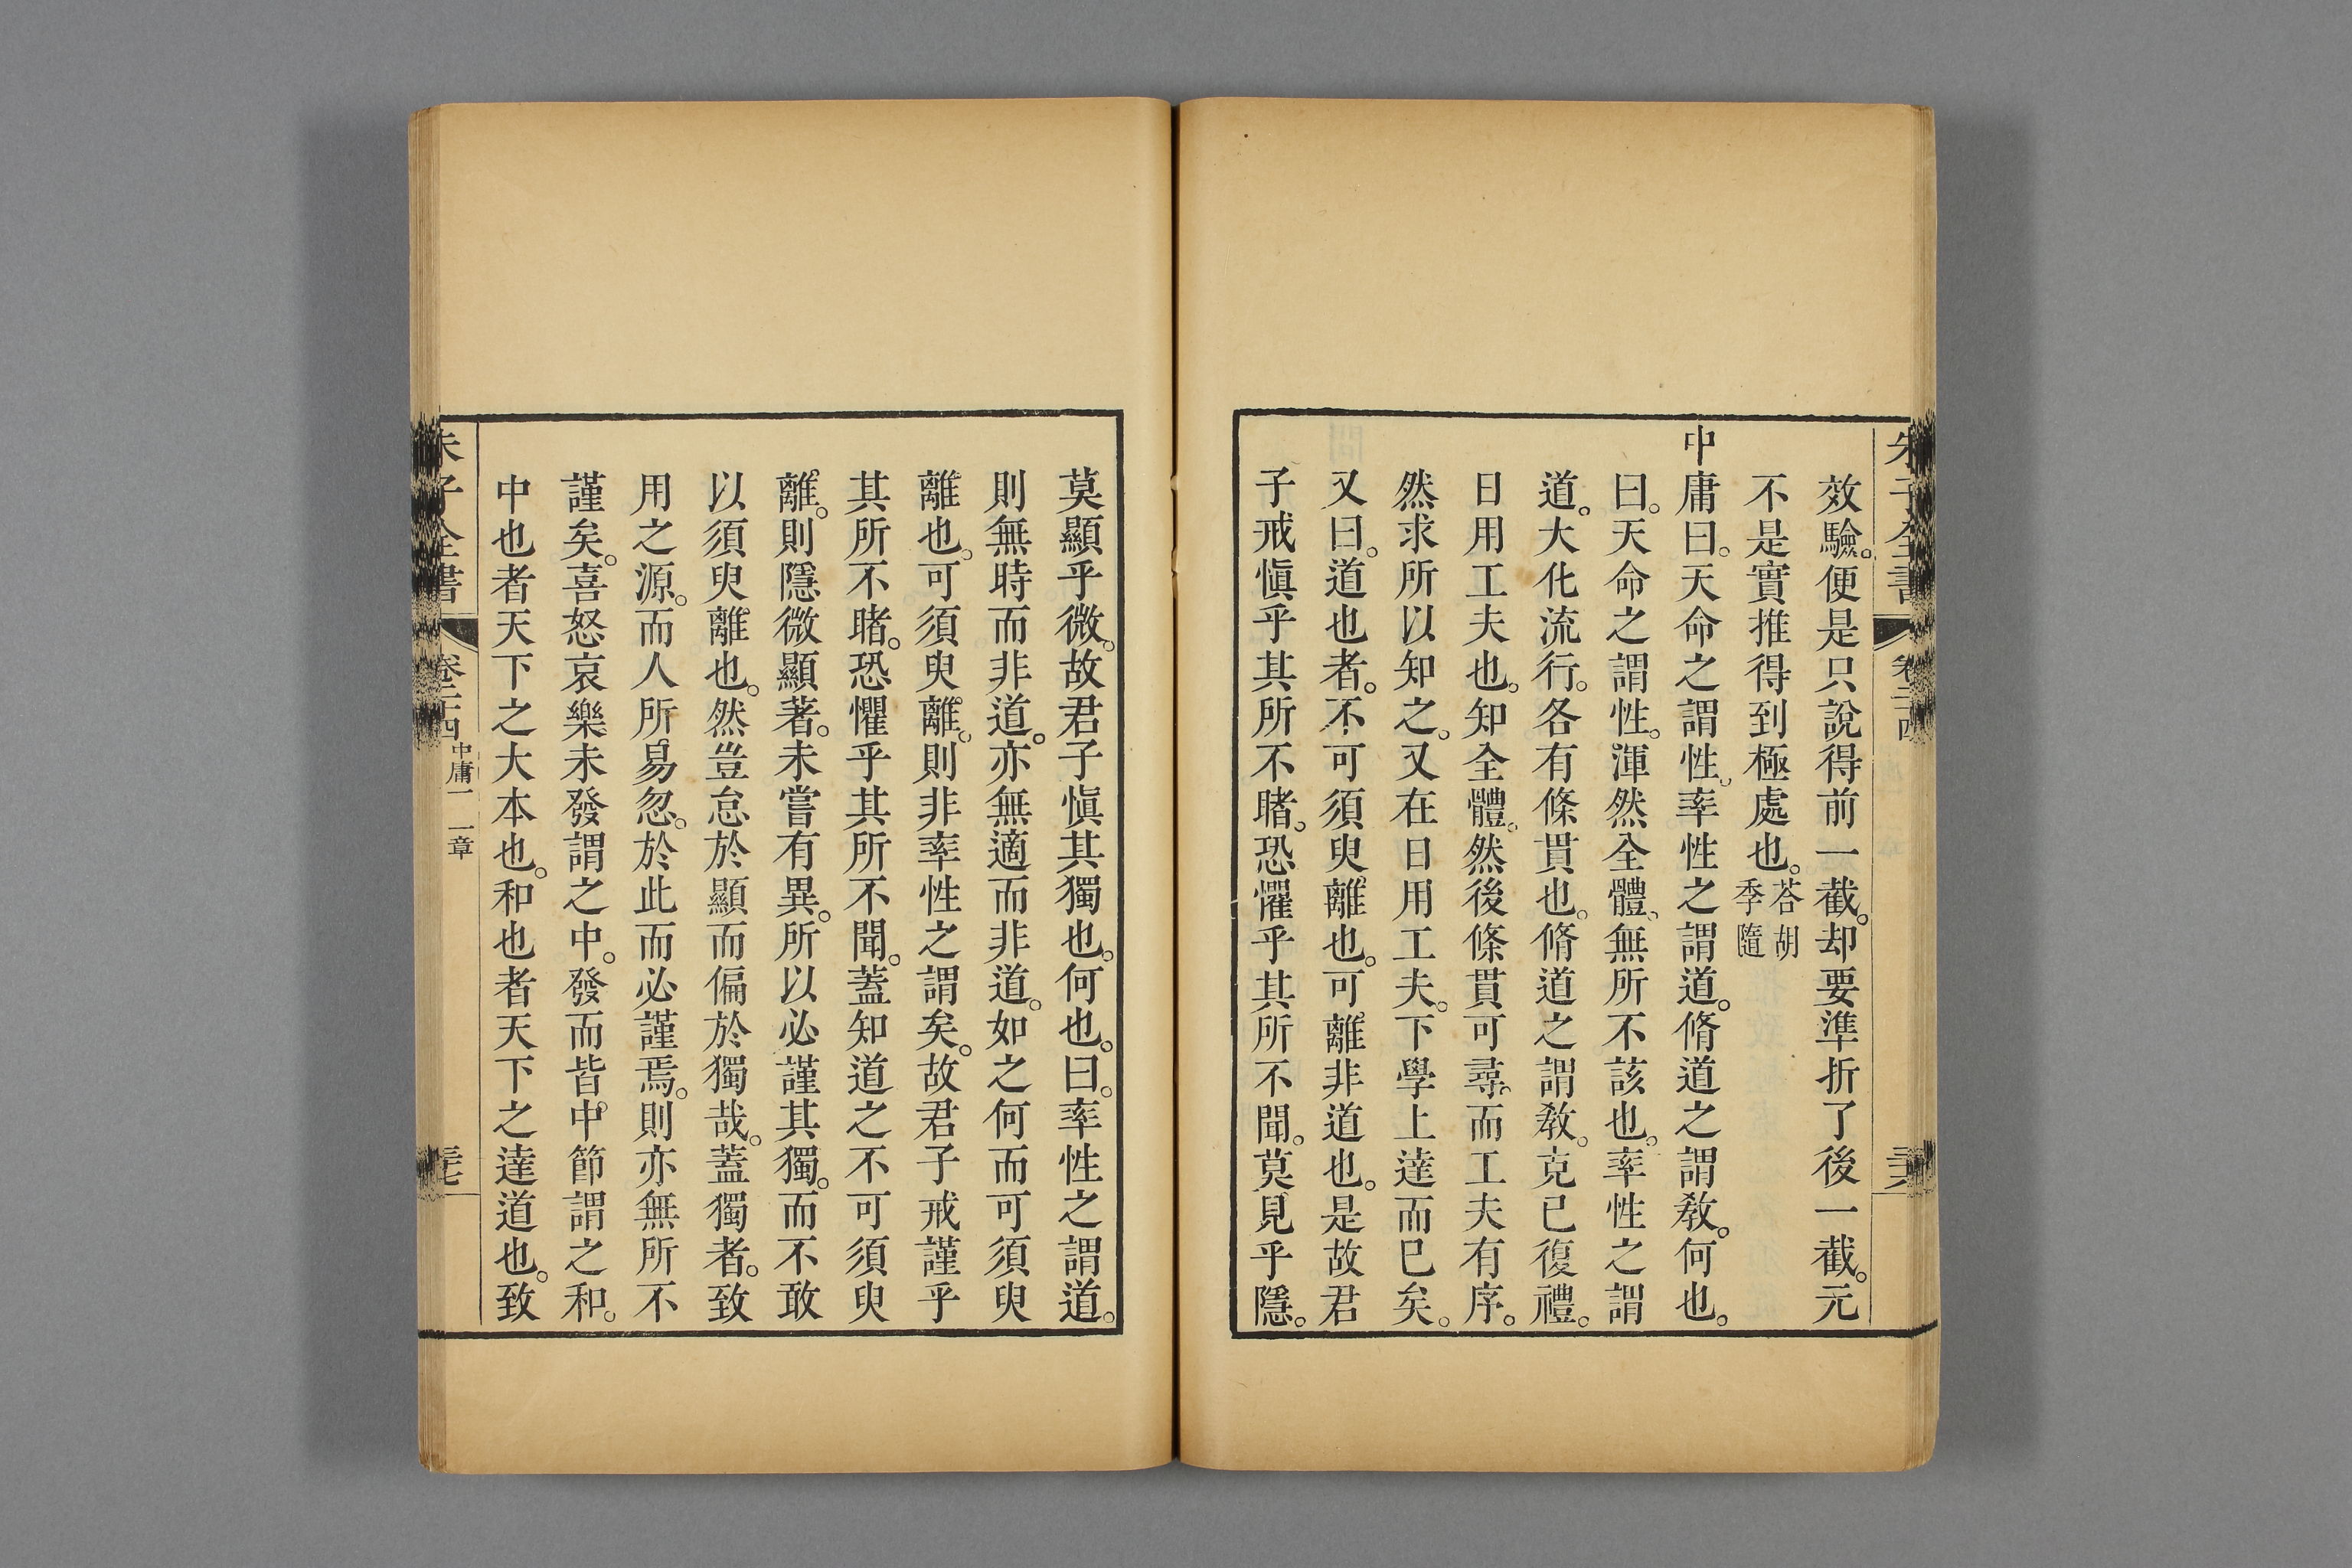 朱子全書 卷二十四 三十六
效驗。便是只說得前一截。却要準折了後一截。元
不是實推得到極處也。荅胡季隨
中庸曰。天命之謂性。率性之謂道。脩道之謂敎。何也。
曰。天命之謂性。渾然全體。無所不該也。率性之謂
道。大化流行。各有條貫也。脩道之謂敎。克已復禮。
日用工夫也。知全體。然後條貫可尋。而工夫有序。
然求所以知之。又在日用工夫。下學上達而已矣。
又曰。道也者。不可須臾離也。可離非道也。是故君
子戒愼乎其所不睹。恐懼乎其所不聞。莫見乎隱。
莫顯乎微。故君子愼其獨也。何也。曰。率性之謂道。
則無時而非道。亦無適而非道。如之何而可須臾
離也。可須臾離。則非率性之謂矣。故君子戒謹乎
其所不睹。恐懼乎其所不聞。蓋知道之不可須臾
離。則隱微顯著。未嘗有異。所以必謹其獨。而不敢
以須臾離也。然豈怠於顯而偏於獨哉。蓋獨者。致
用之源。而人所易忽。於此而必謹焉。則亦無所不
謹矣。喜怒哀樂未發謂之中。發而皆中節謂之和。
中也者天下之大本也。和也者天下之達道也。致
朱子全書 卷二十四 中庸一 一章 三十七